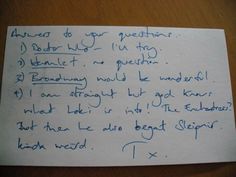 Answers to your questions.
1) Doctor Who - I'll try.
2) Hamlet, no question.
3) Broadway would be wonderful.
4) I am straight but god knows
what Loki is into! The Enchantress?
But then he also begat Sleipnir.
kinda weird.
T x.